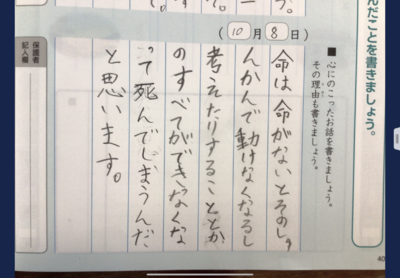 んだことを書きましょう。
■心にのこったお話を書きましょう。
その理由も書きましょう。
(10月8日)
命は命がないとそのし。
んかんで動けなくなるし
考えたりすることとか
のすべてができなくな
って死んでしまうんだ
と思います。
保護者記入欄
40